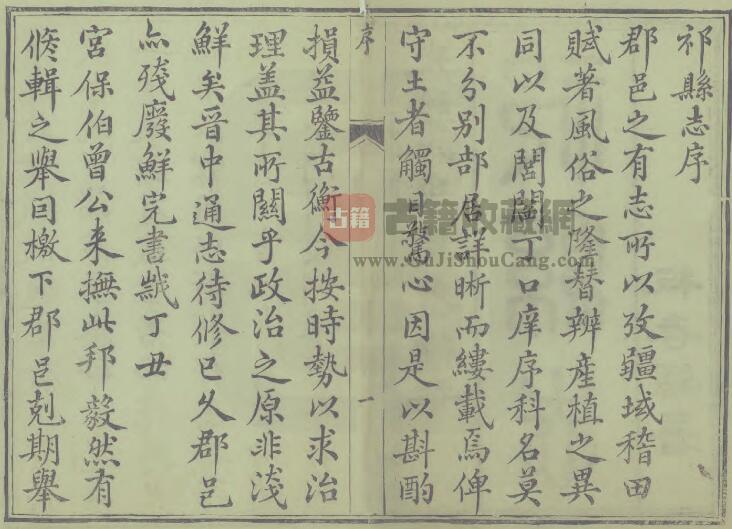 祁縣志序
郡邑之有志所以攷疆域稽田
賦著風俗之隆替辨產植之異
同以及閭閻丁口庠序科名莫
不分別部居詳晰而縷載焉俾
守土者觸目驚心因是以斟酌
序
一
損益鑒古衡今按時勢以求治
理蓋其所關乎政治之原非淺
鮮矣晉中通志待修已久郡邑
亦殘廢鮮完書歲丁丑
宮保伯曾公来撫此邦毅然有
脩輯之舉囙檄下郡邑剋期舉
古籍
古籍收藏網
www.GuJiShouCang.com